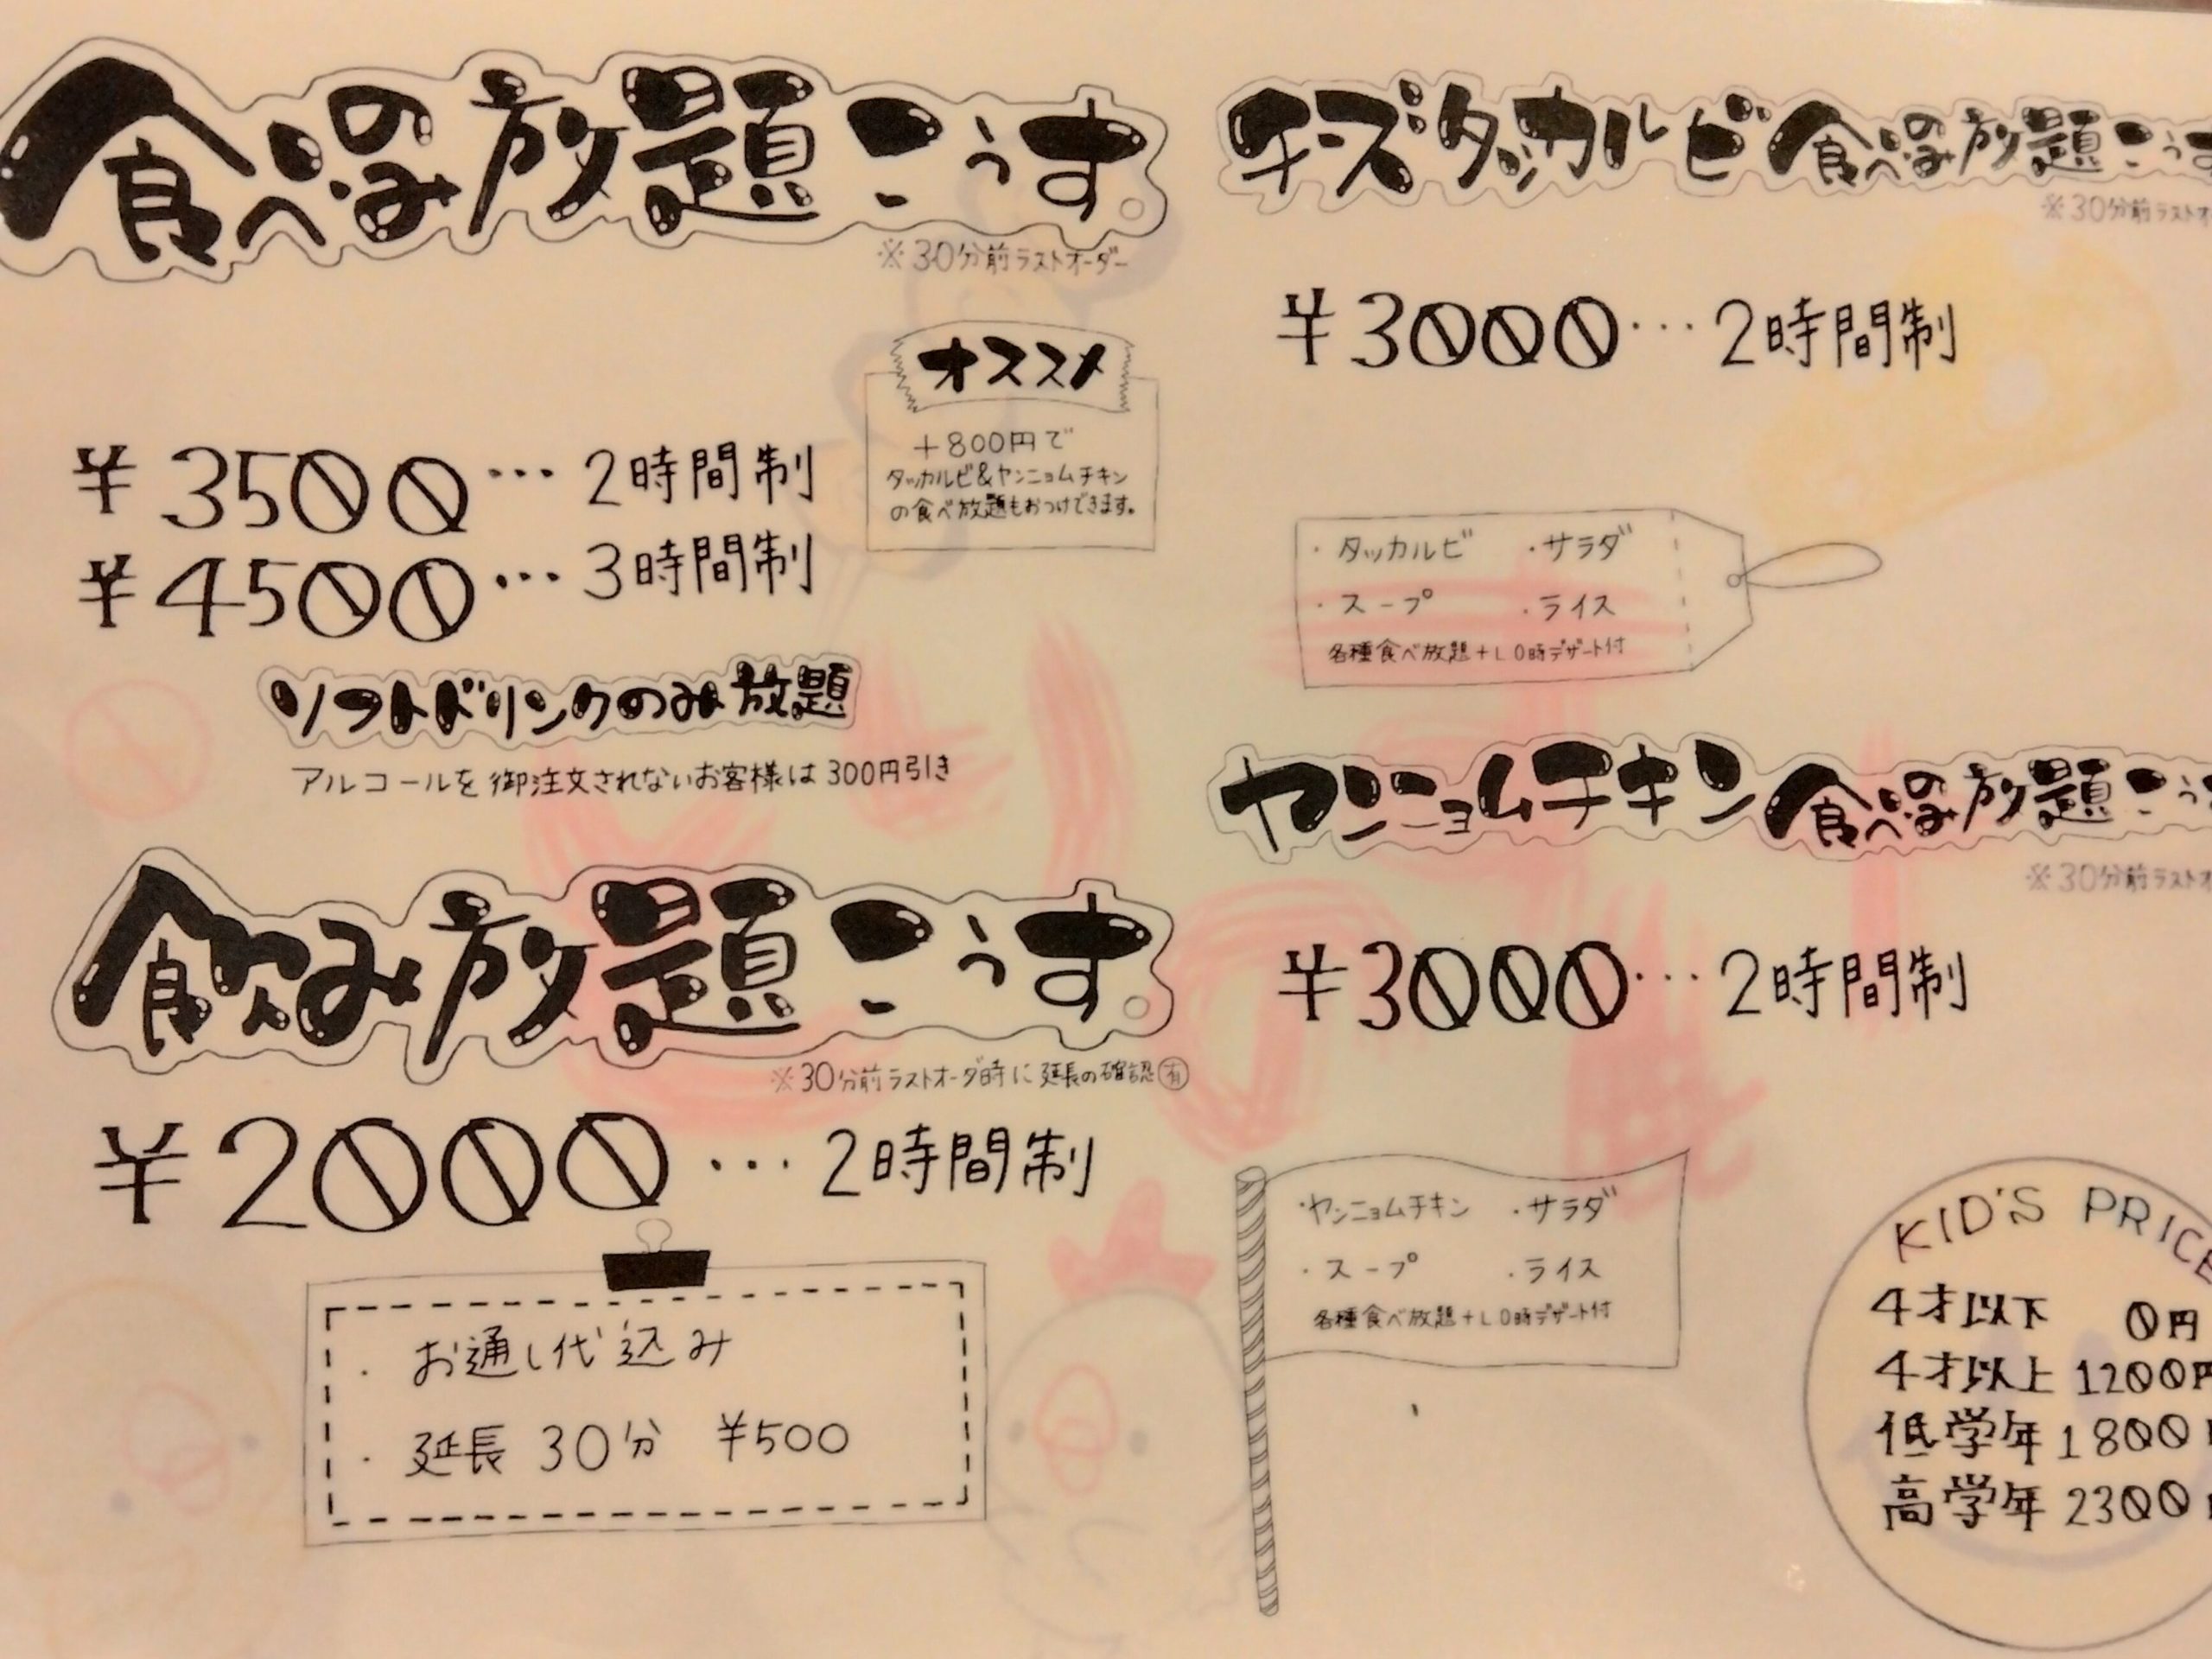 食べのみ放題こぅす。
※30分前ラストオーダー
¥3500…2時間制
¥4500…3時間制
オススメ
+800円で
タッカルビ&ヤンニョムチキン
の食べ放題もおつけできます。
ソフトドリンクのみ放題
アルコールを御注文されないお客様は300円引き
飲み放題こぅす。
※30分前ラストオーダ時に延長の確認有
¥2000…2時間制
・お通し代込み
・延長 30分 ¥500
チーズタッカルビ食べのみ放題こぅす
※30分前ラストオ
¥3000…2時間制
・タッカルビ ・サラダ
・スープ ・ライス
各種食べ放題+L.O時デザート付
ヤンニョムチキン食べのみ放題こぅす
※30分前ラストオ
¥3000…2時間制
・ヤンニョムチキン ・サラダ
・スープ ・ライス
各種食べ放題+L.O時デザート付
KID'S PRICE
4才以下 0円
4才以上 1200円
低学年 1800円
高学年 2300円